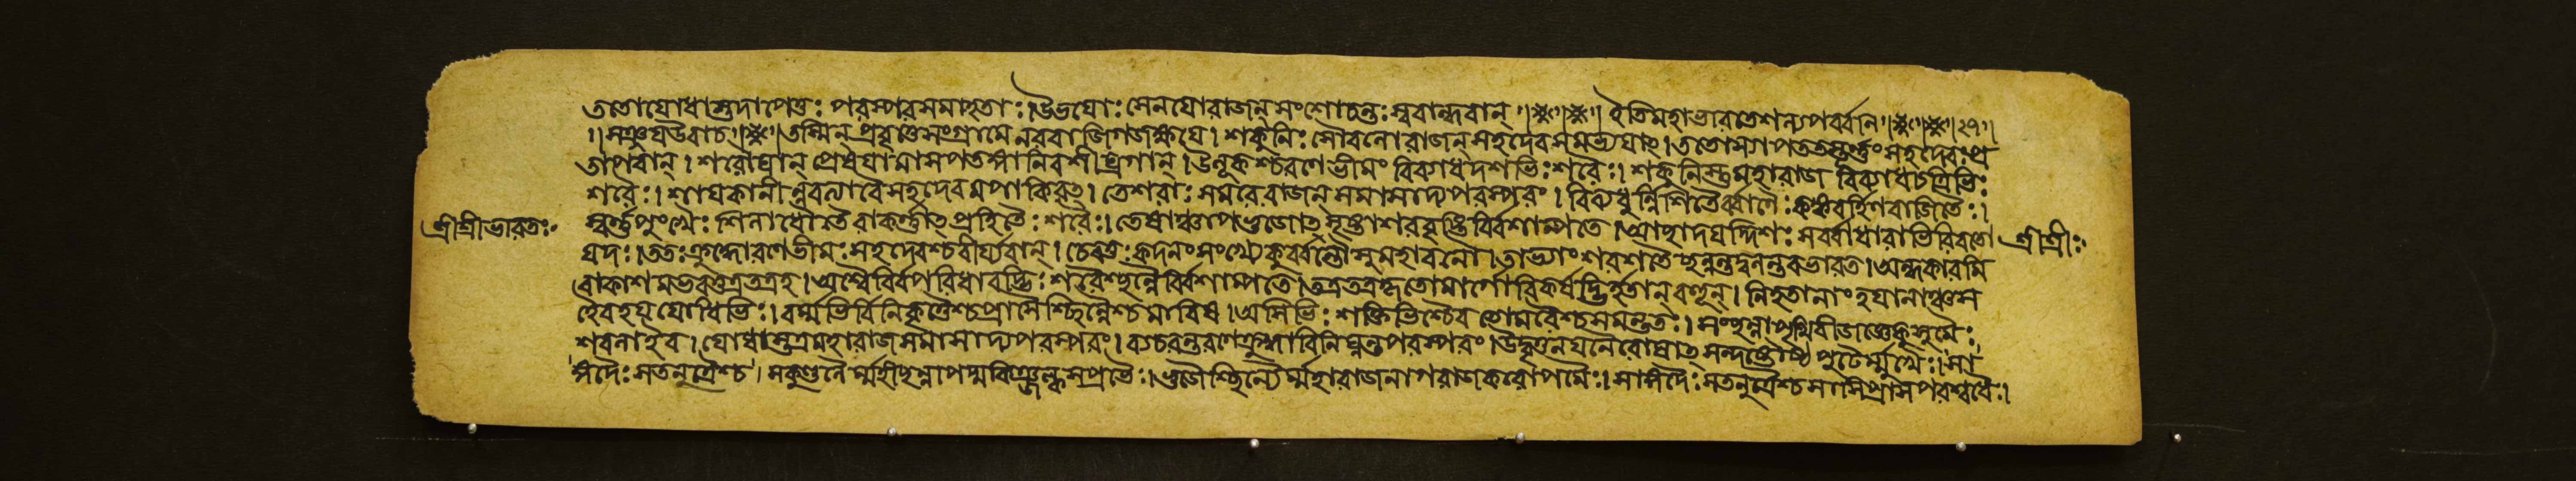 ততোযোধাস্তুদাপেতুঃ পরস্পরসমাহতাঃ।৷উভযোঃ সেনযোরাজন্ সংশোচন্তঃ স্ববান্ধবান্ ৷৷ ইতিমহাভারতেশল্যপর্ব্বনি ৷৷ ৷৷২৭৷৷
৷৷সঞ্জযউবাচ৷৷ ৷৷তস্মিন্ প্রবৃত্তেসংগ্রামে নরবাজিগজক্ষযে। শকুনিঃ সৌবলোরাজন্ সহদেবসমভ্যযাৎ।ততোস্যাপততস্তূর্ণ্ণং সহদেবঃপ্র
তাপবান্। শরৌঘান্ প্রেষযামাসপতঙ্গানিবশীঘ্রগান্।উলূকশ্চরণেভীমং বিব্যাধদশভিঃশরৈঃ। শকুনিস্তুমহারাজ বিব্যাধচত্রিভিঃ
শরৈঃ। শাযকানান্নবত্যাবৈসহদেবমপাকিরৎ। তেশরাঃ সমরেরাজন্ সমাসাদ্যপরস্পরং। বিব্যধুর্ন্নিশিতৈর্ব্বাণৈঃকঙ্কবর্হিণবাজিতৈঃ।
শ্রীশ্রীভারতঃ স্বর্ণ্ণপুংখৈঃ শিলাধৌতৈরাকর্ণ্ণাৎ প্রহিতৈঃ শরৈঃ। তেষাঞ্চাপভুজোৎসৃষ্টাশরবৃষ্টির্বিশাম্পতে।আচ্ছাদযদ্দিশঃ সর্ব্বাধারাভিরিবতো শ্রীশ্রীঃ
যদঃ।ততঃক্রুদ্ধোরণেভীমঃ সহদেবশ্চবীর্য্যবান্। চেরতুঃ কদনংসংখ্যেকুর্ব্বন্তৌসুমহাবলৌ।তাভ্যাং শরশতৈশ্ছন্নন্তদ্বলন্তবভারত।অন্ধকারমি
বাকাশমভবত্তত্রতত্রহ।অশ্বৈর্বিপরিধাবদ্ভিঃ শরৈশ্ছন্নৈর্বিশাম্পতে।তত্রতত্রকৃতোমার্গোবিকর্ষদ্ভির্হতান্ বহূন্। নিহতানাংহযানাঞ্চস
হৈবহয যোধিভিঃ। বর্ম্মভির্বিনিকৃত্তৈশ্চপ্রাসৈশ্ছিন্নৈশ্চমারিষ।অসিভিঃ শক্তিভিশ্চৈব তোমরৈশ্চসমন্ততঃ। সংছন্নাপৃথিবীজজ্ঞেকুসুমৈঃ
শবলাইব। যোধাস্তত্রমহারাজসমাসাদ্যপরস্পরং। ব্যচরন্তরণেক্রুদ্ধাবিনিঘ্নন্তপরস্পরং।উদ্বৃত্তনযনৈরোষাৎ সন্দষ্টৌষ্ঠ পুটৈর্ম্মুখৈঃ।সা
ঙ্গদৈঃ সতনুত্রৈশ্চ। সকুণ্ডলৈর্ম্মহীছন্নাপদ্মকিঞ্জল্কসপ্রভৈঃ।ভুজৈশ্ছিন্নৈর্ম্মহারাজনাগরাজকরোপমৈঃ।সাঙ্গদৈঃ সতনুত্রৈশ্চসাসিপ্রাসপরশ্বধৈঃ।